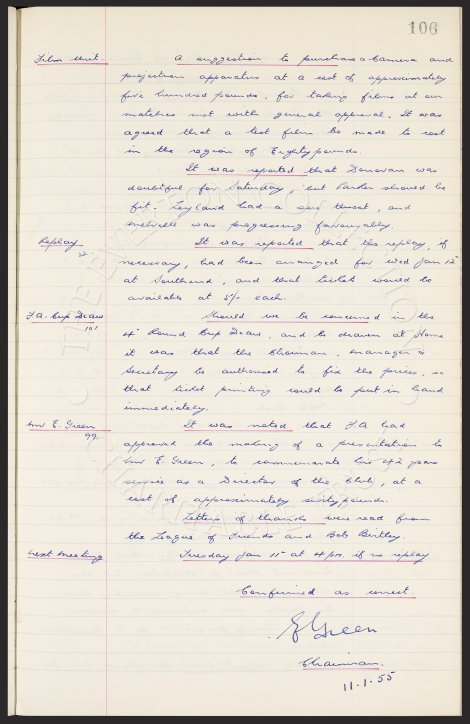 106
Film Unit. A suggestion to purchase a Camera and
projection apparatus at a cost of approximately
five hundred pounds, for taking films at our
matches met with general approval. It was
agreed that a test film be made to cost
in the region of Eighty pounds.
It was reported that Donovan was
doubtful for Saturday, but Parker should be
fit. Leyland had a sore throat, and
was progressing favourably.
Replay It was reported that, the replay, if
necessary, had been arranged for Wed Jan 12th
at Southend, and that tickets would be
available at 5/- each.
F.A. Cup Draw Should we be concerned in the
101
4th Round Cup Draw, and be drawn at Home
it was that the Chairman, Manager &
Secretary be authorised to fix the prices, so
that ticket printing could be put in hand
immediately.
Mr E. Green It was noted that F.A had
99.
approved the making of a presentation to
Mr E. Green, to commemorate his 42 years
service as a Director of the Club, at a
cost of approximately sixty pounds.
Letters of thanks were read from
the League of Friends and Bob Birtley.
Next meeting Tuesday Jan 11th at 4 pm. if no replay
Confirmed as correct.
E Green
Chairman.
11.1.55